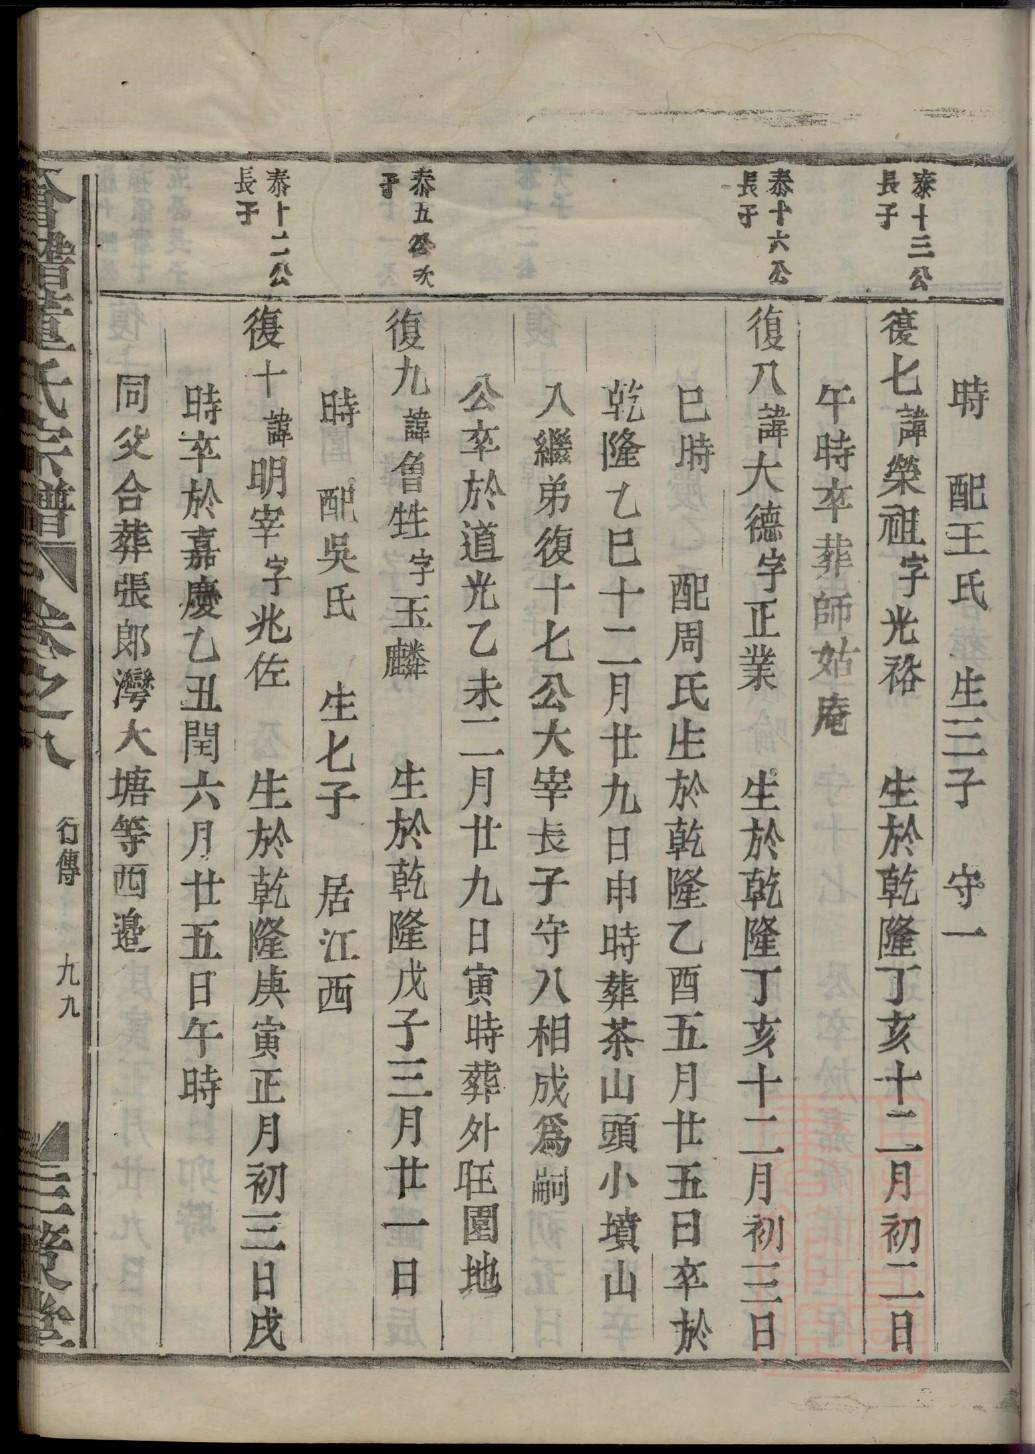 時 配王氏 生三子 守一
泰十三公
長子
復七諱榮祖字光裕 生於乾隆丁亥十二月初二日
午時卒葬師姑庵
泰十六公
長子
復八諱大德字正業 生於乾隆丁亥十二月初三日
巳時 配周氏生於乾隆乙酉五月廿五日卒於
乾隆乙巳十二月廿九日申時葬茶山頭小墳山
入繼弟復十七公大宰長子守八相成爲嗣
公卒於道光乙未二月廿九日寅時葬外旺園地
泰五公次
子
復九諱魯甡字玉麟 生於乾隆戊子三月廿一日
時 配吳氏 生七子 居江西
泰十二公
長子
復十諱明宰字兆佐 生於乾隆庚寅正月初三日戌
時卒於嘉慶乙丑閏六月廿五日午時
同父合葬張郎灣大塘等西邉
董氏宗譜 卷之八 行傳 九九 三策堂